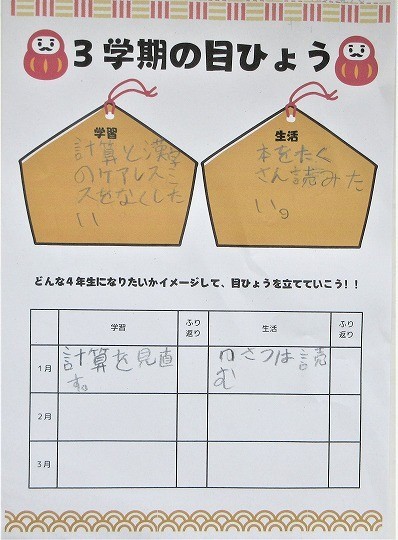 3学期の目ひょう
学習
計算と漢字
のケアレスミ
スをなくした
い
生活
本をたく
さん読みた
い。
どんな4年生になりたいかイメージして、目ひょうを立てていこう!!
学習
ふり
返り
生活
ふり
返り
1月
計算を見直
す。
さつは読
む
2月
3月